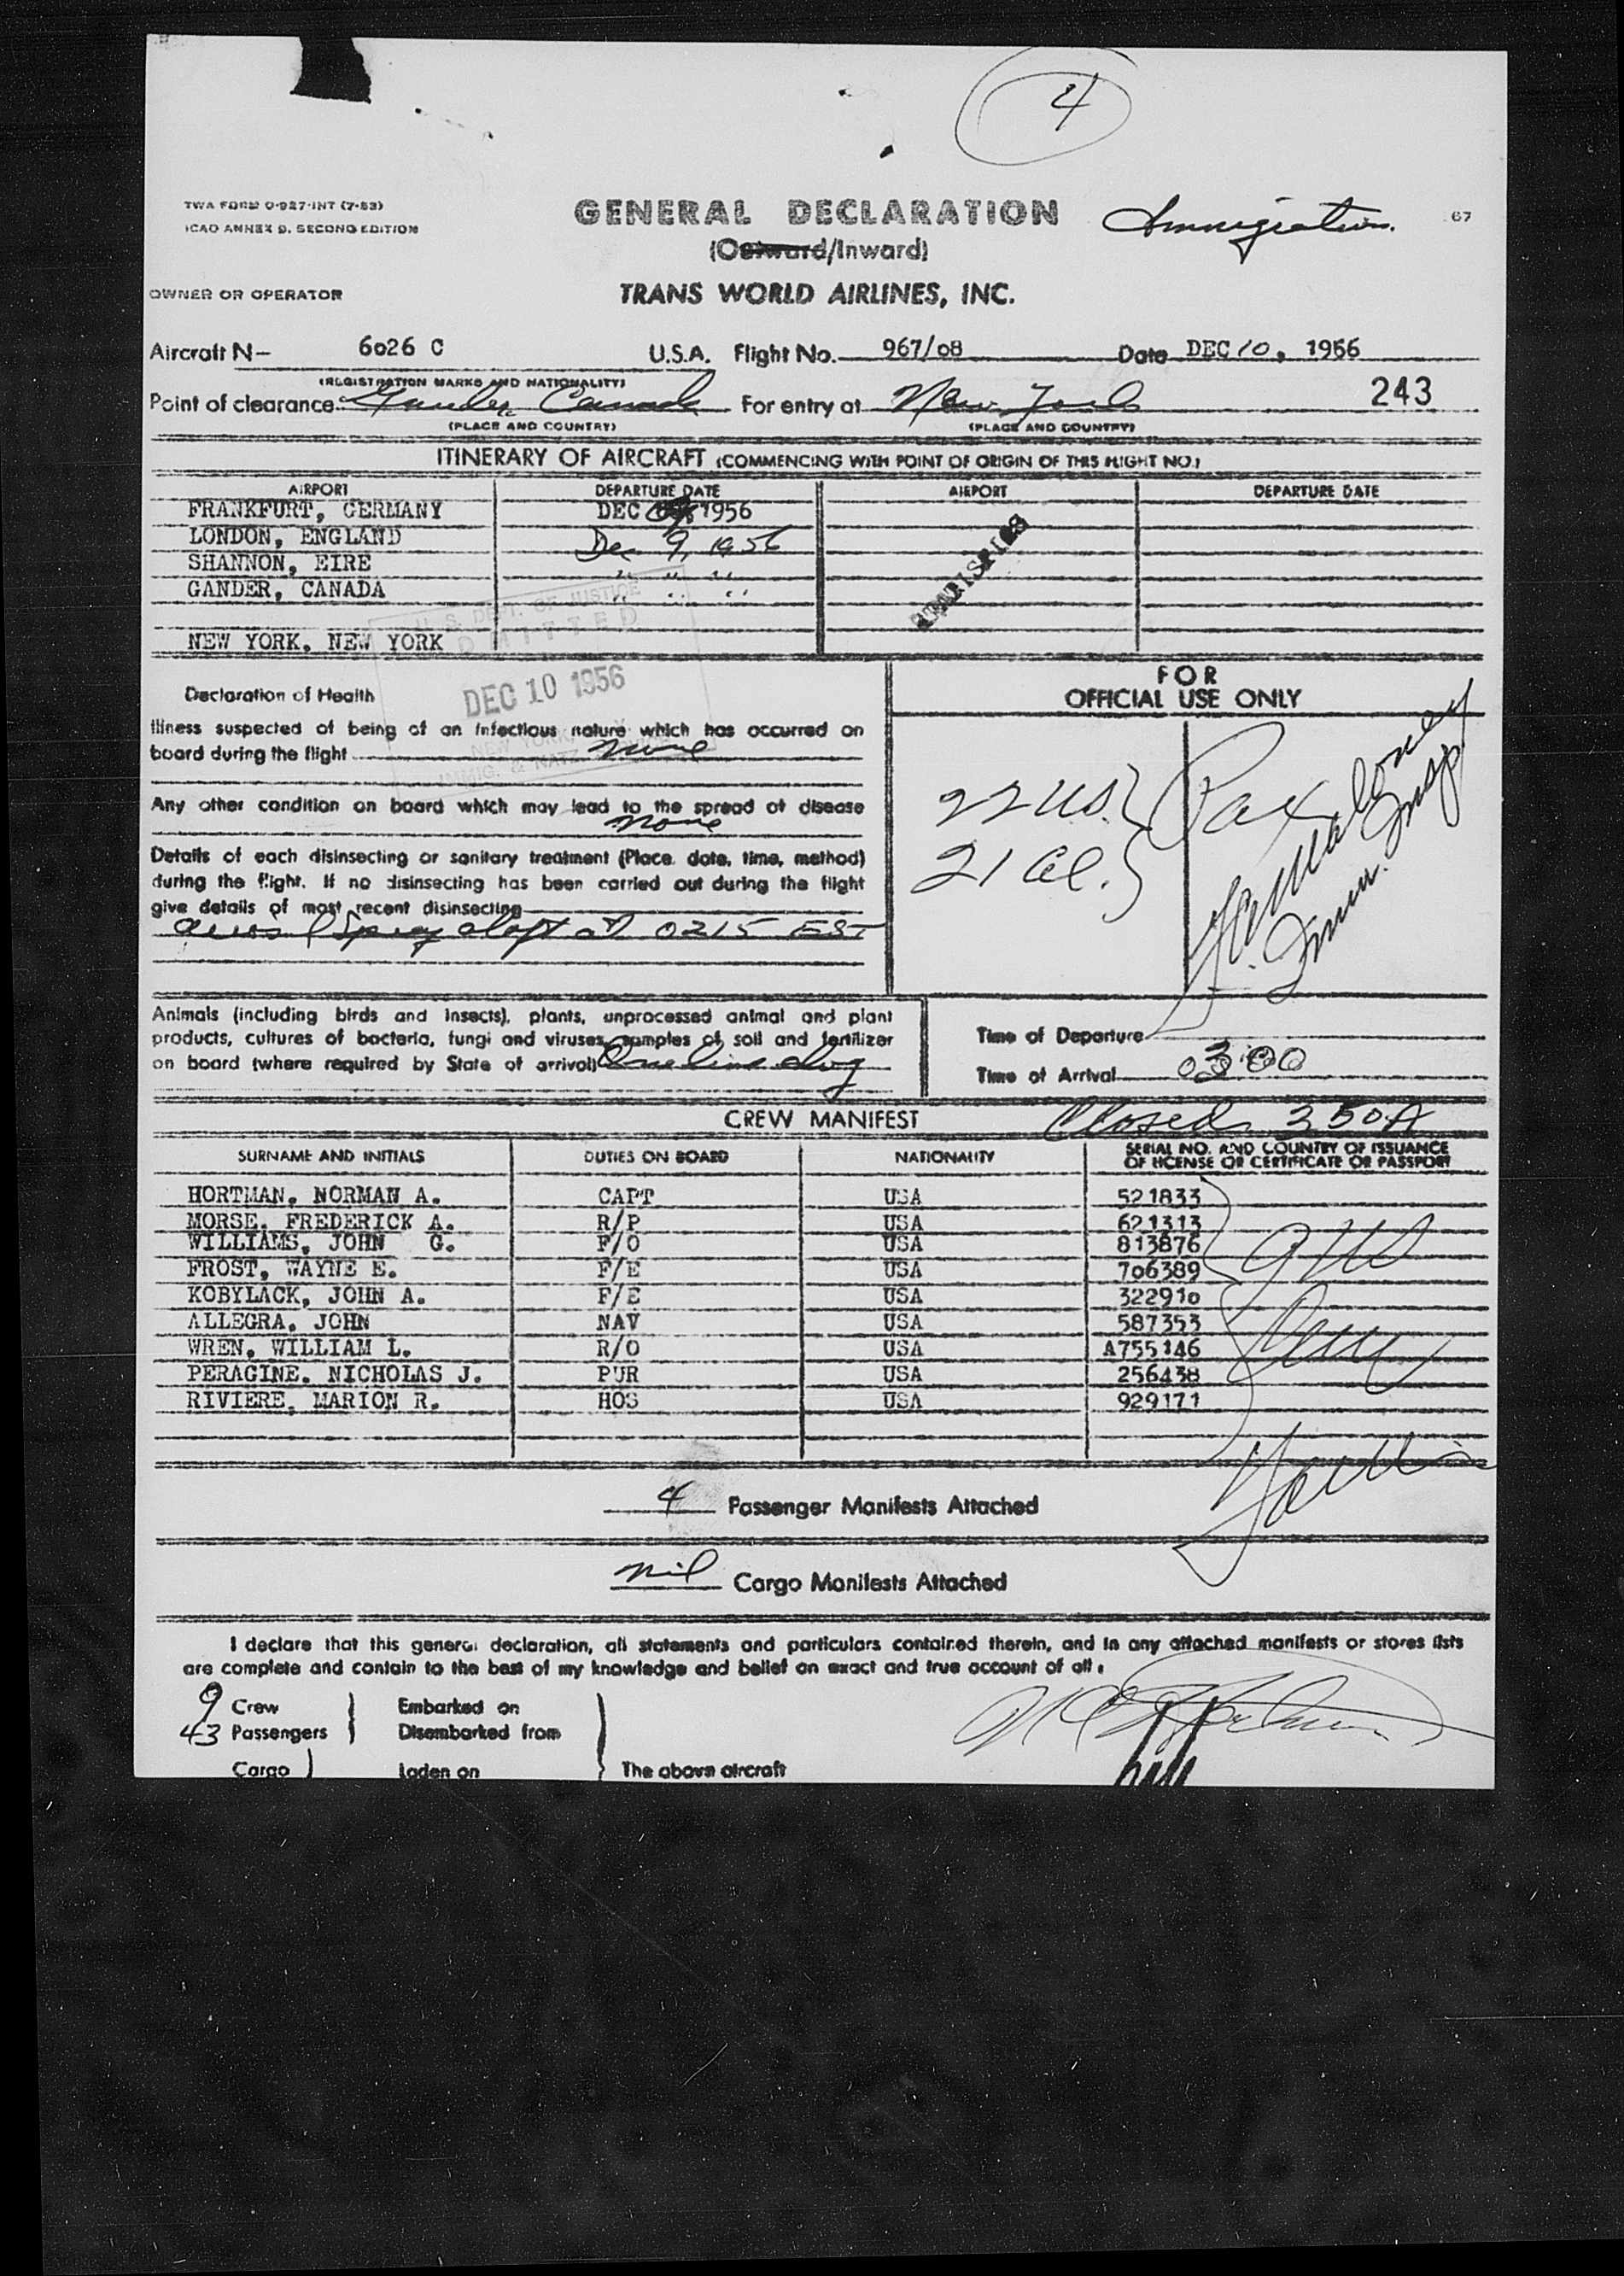 4
TWA FORM O-927-INT (7-53)
ICAO ANNEX 9, SECOND EDITION
GENERAL DECLARATION
Immigration
67
(Outward/Inward)
OWNER OR OPERATOR
TRANS WORLD AIRLINES, INC.
Aircraft N- 6026 C U.S.A. Flight No. 967/08 Date DEC 10, 1956
(REGISTRATION MARKS AND NATIONALITY)
Point of clearance Gander Canada For entry at New York 243
(PLACE AND COUNTRY) (PLACE AND COUNTRY)
ITINERARY OF AIRCRAFT (COMMENCING WITH POINT OF ORIGIN OF THIS FLIGHT NO.)
AIRPORT DEPARTURE DATE AIRPORT DEPARTURE DATE
FRANKFURT, GERMANY DEC 1956
LONDON, ENGLAND Dec 9, 1956
SHANNON, EIRE " " "
GANDER, CANADA " " "
NEW YORK, NEW YORK
U. S. DEPT. OF JUSTICE
ADMITTED
DEC 10 1956
NEW YORK, N.Y.
IMMIG. & NATZ. SERVICE
Declaration of Health
Illness suspected of being of an infectious nature which has occurred on
board during the flight none
Any other condition on board which may lead to the spread of disease
none
Details of each disinsecting or sanitary treatment (Place, date, time, method)
during the flight. If no disinsecting has been carried out during the flight
give details of most recent disinsecting
Spray aloft at 0215 EST
FOR
OFFICIAL USE ONLY
22 US. } Pax
21 al. }
Immr. Insp
Animals (including birds and insects), plants, unprocessed animal and plant
products, cultures of bacteria, fungi and viruses, samples of soil and fertilizer
on board (where required by State of arrival) One live dog
Time of Departure
Time of Arrival 0300
CREW MANIFEST
Closed 350A
SURNAME AND INITIALS DUTIES ON BOARD NATIONALITY SERIAL NO. AND COUNTRY OF ISSUANCE
OF LICENSE OR CERTIFICATE OR PASSPORT
HORTMAN, NORMAN A. CAPT USA 521833
MORSE, FREDERICK A. R/P USA 621313
WILLIAMS, JOHN G. F/O USA 813876
FROST, WAYNE E. F/E USA 706389
KOBYLACK, JOHN A. F/E USA 322910
ALLEGRA, JOHN NAV USA 587353
WREN, WILLIAM L. R/O USA A755146
PERAGINE, NICHOLAS J. PUR USA 256438
RIVIERE, MARION R. HOS USA 929171
4 Passenger Manifests Attached
nil Cargo Manifests Attached
I declare that this general declaration, all statements and particulars contained therein, and in any attached manifests or stores lists
are complete and contain to the best of my knowledge and belief an exact and true account of all:
9 Crew } Embarked on
43 Passengers } Disembarked from
Cargo } Laden on } The above aircraft